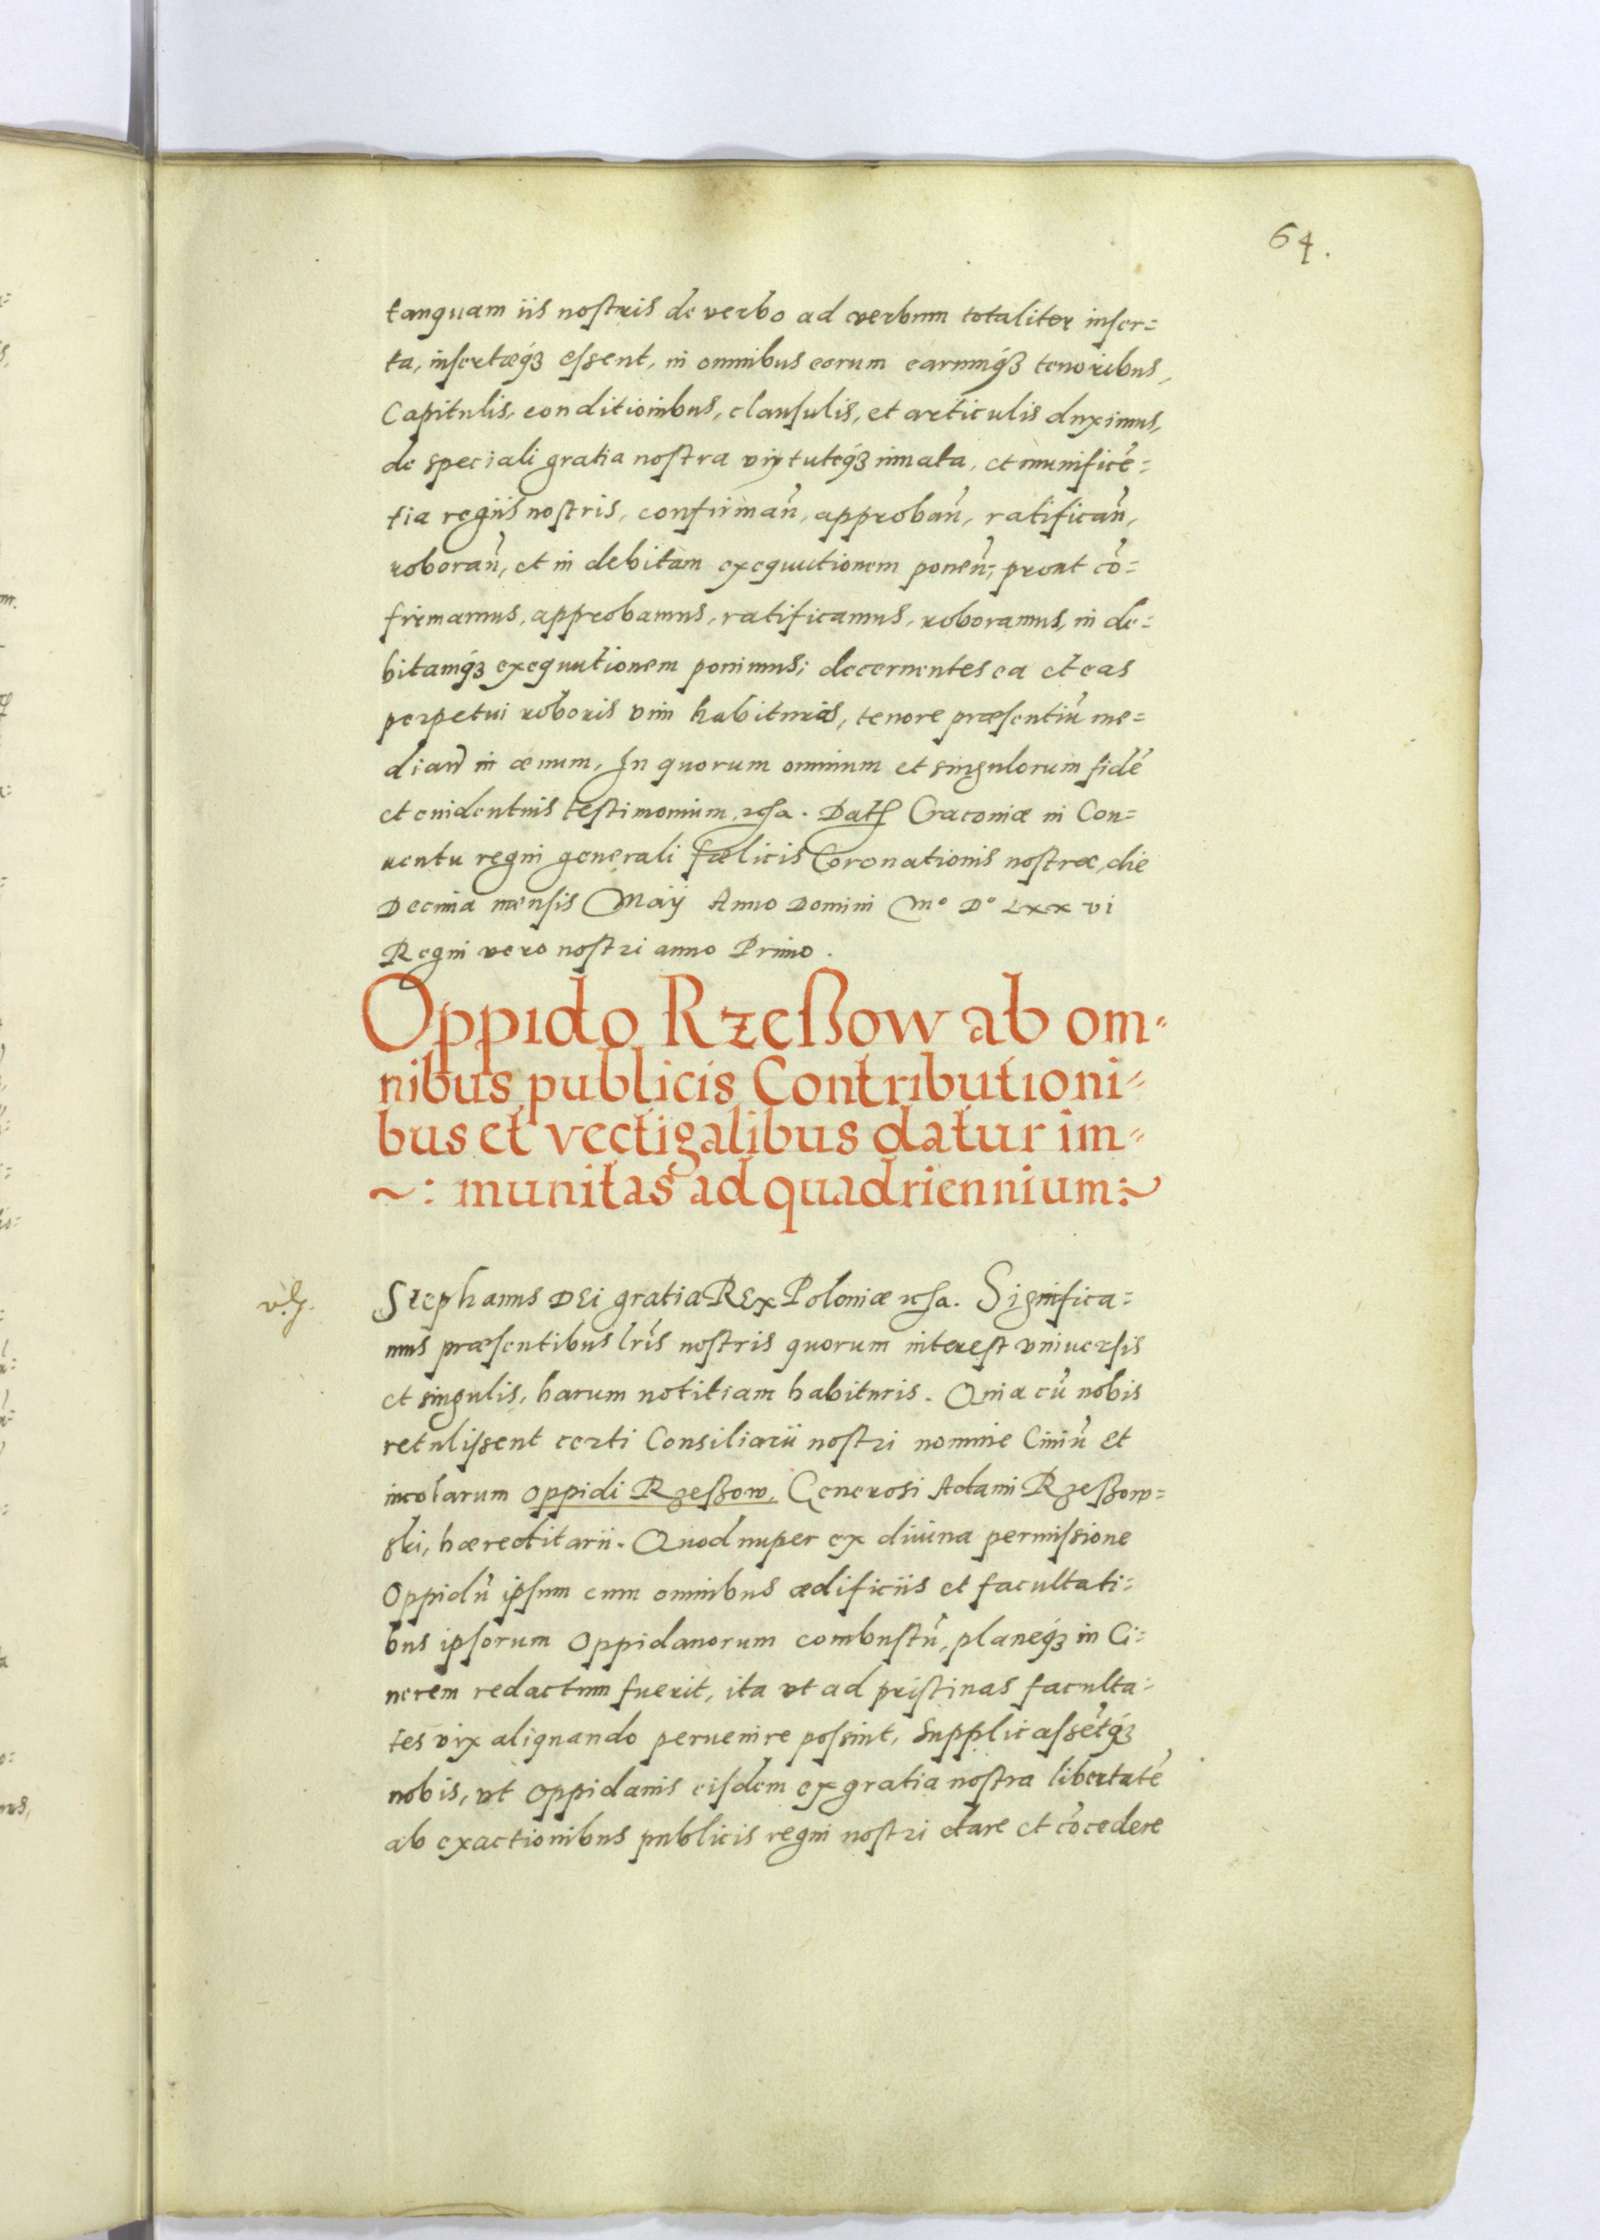 64.
tanquam iis nostris de verbo ad verbum totaliter inser=
ta, insertæq́ꝫ essent, in omnibus eorum earumq́ꝫ tenoribus,
Capitulis, conditionibus, clausulis, et articulis duximus,
de speciali gratia nostra virtuteq́ꝫ innata, et munificē=
tia regiis nostris, confirmañ, approbañ, ratificañ,
roborañ, et in debitam exequutionem poneñ, prout cō=
firmamus, approbamus, ratificamus, roboramus, in de=
bitamq́ꝫ exequutionem ponimus; decernentes ea et eas
perpetui roboris vim habituras, tenore præsentiū me=
diañ in æuum. In quorum omnium et singulorum fidē
et euidentius testimonium, etc̃a. Datȝ Cracoviæ in Con=
uentu regni generali fœlicis Coronationis nostræ, die
Decima mensis Maij Anno Domini Mº Dº Lxx vi
Regni vero nostri anno Primo.
Oppido Rzeßow ab om=
nibus publicis Contributioni=
bus et vectigalibus datur im=
~: munitas ad quadriennium:~
Stephanus DEi gratia REx Poloniæ etc̃a. Significa=
mus præsentibus lr̃is nostris quorum interest vniuersis
et singulis, harum notitiam habituris. Quia cū nobis
retulissent certi Consiliarii nostri nomine Ciuiū et
incolarum oppidi Rzeßow, Generosi Adami Rzeßow=
ski, hæreditarii. Quod nuper ex diuina permissione
Oppidū ipsum cum omnibus ædificiis et facultati=
bus ipsorum Oppidanorum combustū, planeq́ꝫ in Ci=
nerem redactum fuerit, ita vt ad pristinas faculta=
tes vix aliquando peruenire possint, Supplicassētq́ꝫ
nobis, vt Oppidanis eisdem ex gratia nostra libertatē
ab exactionibus publicis regni nostri dare et cōcedere